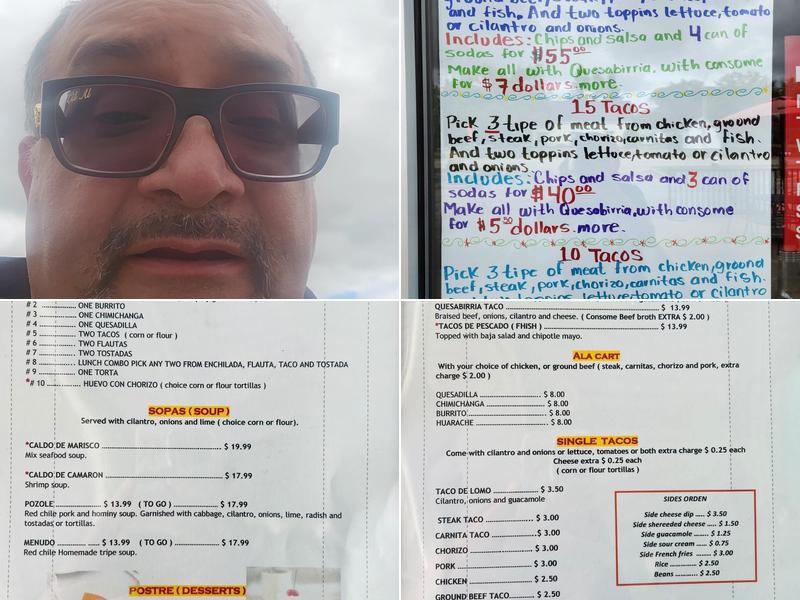 and fish. And two toppins lettuce, tomato
or cilantro and onions.
Includes: Chips and salsa and 4 can of
sodas for $55.00
Make all with Quesabirria, with consome
for $7 dollars more.
15 Tacos
Pick 3 tipe of meat from chicken, ground
beef, steak, pork, chorizo, carnitas and fish.
And two toppins lettuce, tomato or cilantro
and onions.
Includes: Chips and salsa and 3 can of
sodas for $40.00
Make all with Quesabirria, with consome
for $5.50 dollars more.
10 Tacos
Pick 3 tipe of meat from chicken, ground
beef, steak, pork, chorizo, carnitas and fish.
toppins lettuce, tomato or cilantro
# 2 ONE BURRITO
# 3 ONE CHIMICHANGA
# 4 ONE QUESADILLA
# 5 TWO TACOS ( corn or flour )
# 6 TWO FLAUTAS
# 7 TWO TOSTADAS
# 8 LUNCH COMBO PICK ANY TWO FROM ENCHILADA, FLAUTA, TACO AND TOSTADA
# 9 ONE TORTA
*# 10 HUEVO CON CHORIZO ( choice corn or flour tortillas )
SOPAS ( SOUP )
Served with cilantro, onions and lime ( choice corn or flour).
*CALDO DE MARISCO $ 19.99
Mix seafood soup.
*CALDO DE CAMARON $ 17.99
Shrimp soup.
POZOLE $ 13.99 ( TO GO ) $ 17.99
Red chile pork and hominy soup. Garnished with cabbage, cilantro, onions, lime, radish and
tostadas or tortillas.
MENUDO $ 13.99 ( TO GO ) $ 17.99
Red chile Homemade tripe soup.
POSTRE ( DESSERTS )
QUESABIRRIA TACO $ 13.99
Braised beef, onions, cilantro and cheese. ( Consome Beef broth EXTRA $ 2.00 )
*TACOS DE PESCADO ( FHISH ) $ 13.99
Topped with baja salad and chipotle mayo.
ALA CART
With your choice of chicken, or ground beef ( steak, carnitas, chorizo and pork, extra
charge $ 2.00 )
QUESADILLA $ 8.00
CHIMICHANGA $ 8.00
BURRITO $ 8.00
HUARACHE $ 8.00
SINGLE TACOS
Come with cilantro and onions or lettuce, tomatoes or both extra charge $ 0.25 each
Cheese extra $ 0.25 each
( corn or flour tortillas )
TACO DE LOMO $ 3.50
Cilantro, onions and guacamole
STEAK TACO $ 3.00
CARNITA TACO $ 3.00
CHORIZO $ 3.00
PORK $ 3.00
CHICKEN $ 2.50
GROUND BEEF TACO $ 2.50
SIDES ORDEN
Side cheese dip $ 3.50
Side shereeded cheese $ 1.50
Side guacamole $ 1.25
Side sour cream $ 0.75
Side French fries $ 3.00
Rice $ 2.50
Beans $ 2.50